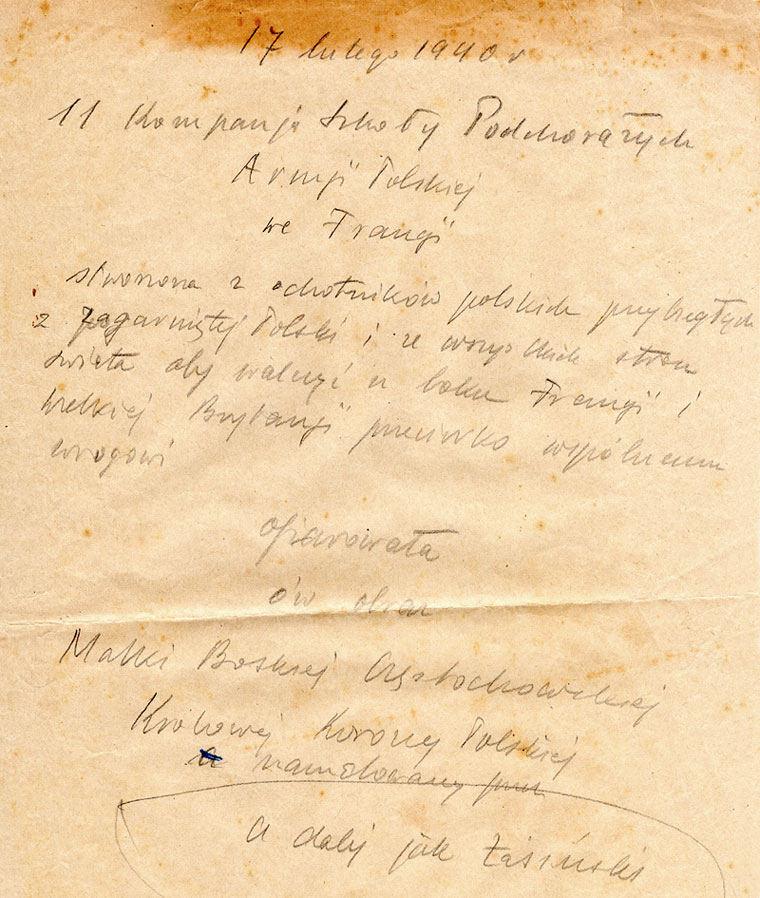 17 lutego 1940 r
11 Kompanja Szkoły Podchorążych
Armji Polskiej
we Francji
stworzona z ochotników polskich przybiegłych
z zagarniętej Polski i ze wszystkich stron
świata aby walczyć u boku Francji i
Wielkiej Brytanji przeciwko wspólnemu
wrogowi
ofiarowała
ów obraz
Matki Boskiej Częstochowskiej
Królowej Korony Polskiej
a namalowany przez
a dalej jak Łasiński